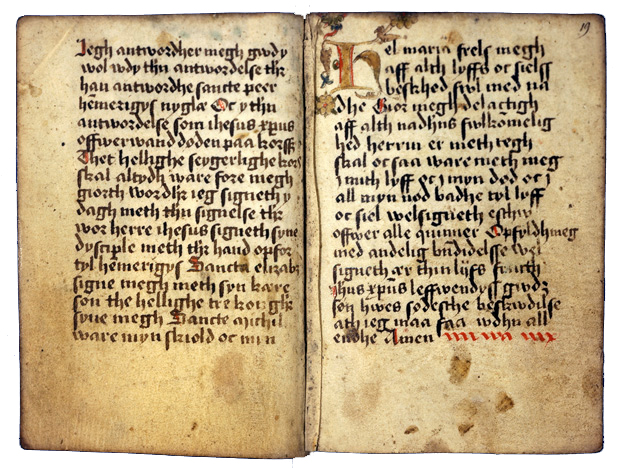 Jegh antwordher megh gwdy
wol wdy thn antwordelse thr
han antwordhe sancte peer
hemerigys nyglæ Oc y thn
antwordelse som ihesus xpus
offwerwand døden paa korsß
Thet hellighe seyerlighe kors
skal altydh ware fore megh
giorth wordhr ieg signeth y
dagh meth thn signelse thr
wor herre ihesus signeth syne
dysciple meth thr hand opfor
tyl hemerigys Sancta elizabz
signe megh meth syn kære
son the hellighe tre konghr
syne megh Sancte michil
ware myn skiold oc myn
19
Hel maria frels megh
aff alth lyffs oc sielss
beskhed swl med na
dhe Giør megh delactigh
aff alth nadhns fwlkomelig
hed herrin er meth tegh
skal oc saa ware meth meg
i mith lyff oc i myn død oc i
all myn nød badhe tyl lyff
oc siel welsigneth esthw
offwer alle quinner Opfyldh meg
med andelig bndidelsse wel
signeth ær thin liiffs fructh
ihus xpus leffwendyss gwdz
søn hwes sødesthe beskwdilse
ath ieg maa faa wdhn all
endhe Amen